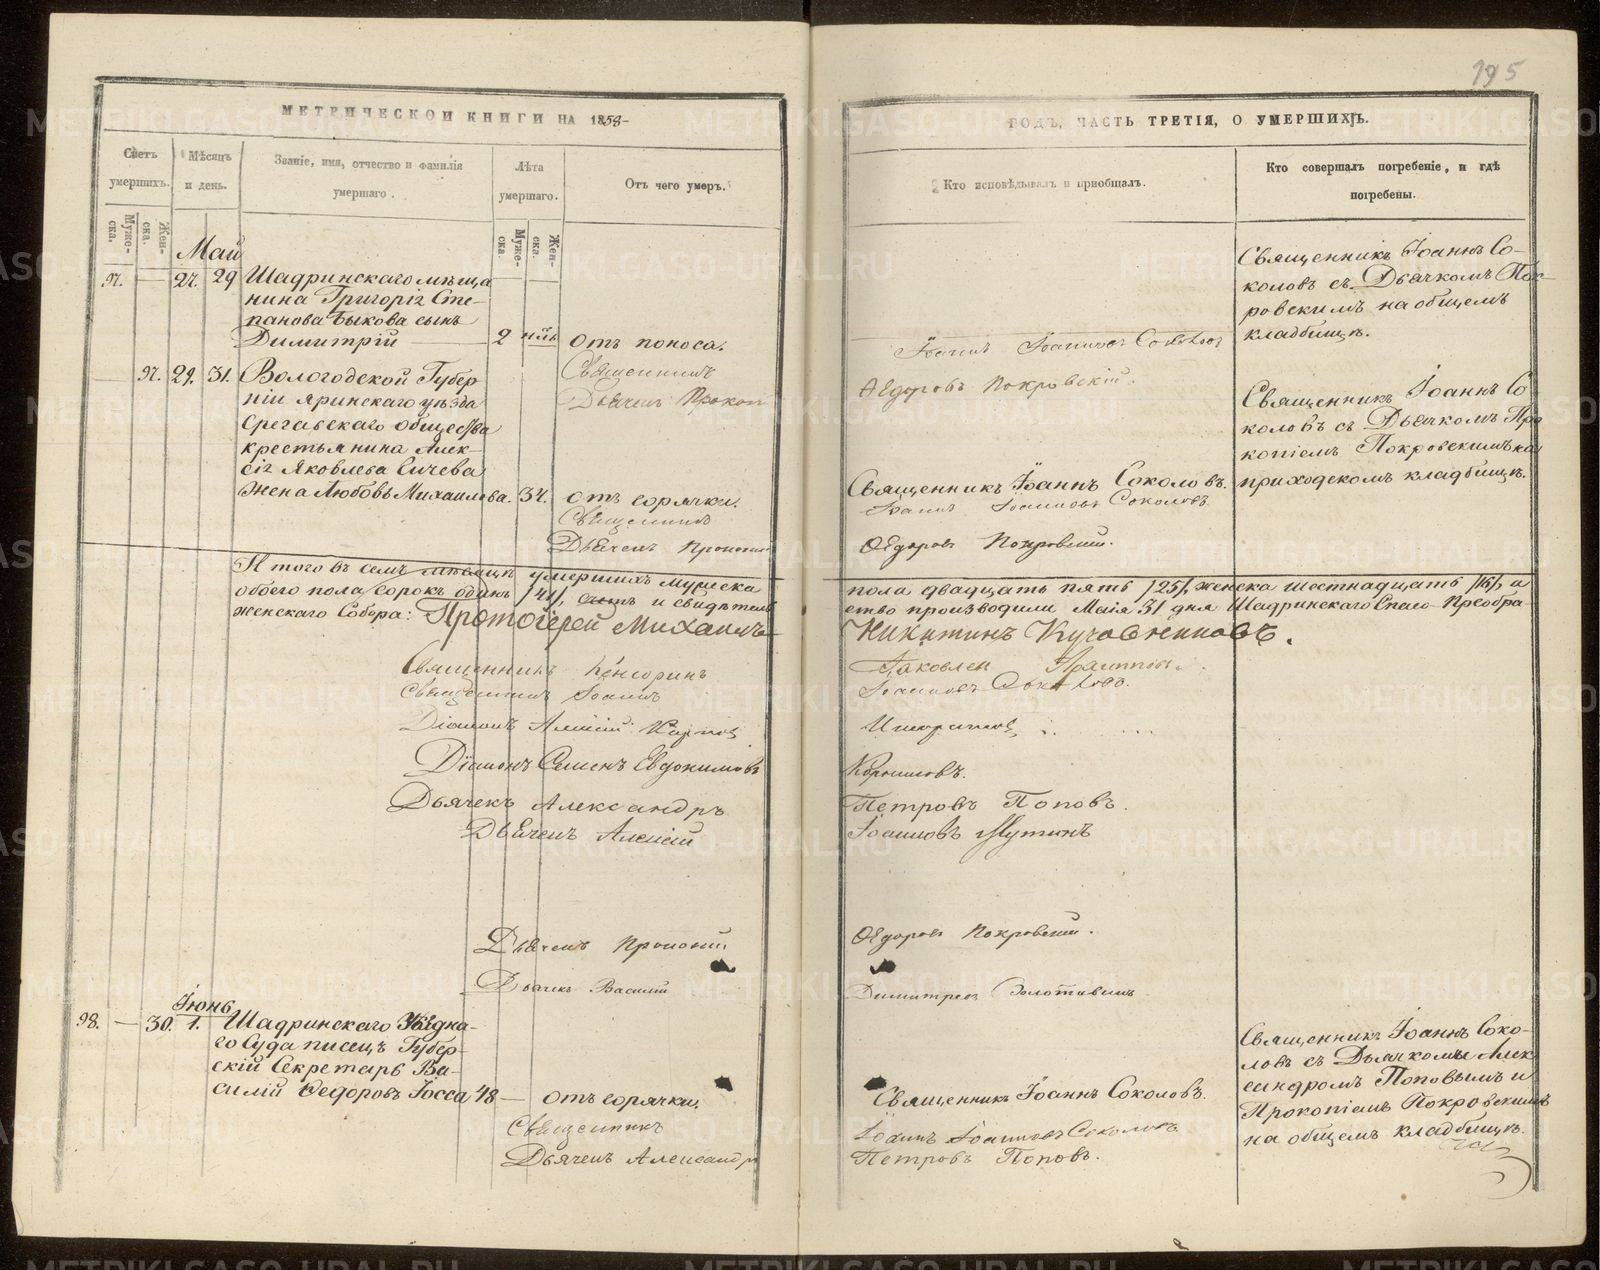 195
МЕТРИЧЕСКОЙ КНИГИ НА 1858
ГОДЪ, ЧАСТЬ ТРЕТІЯ, О УМЕРШИХЪ.
Счетъ умершихъ.
Мѣсяцъ и день.
Званіе, имя, отчество и фамилія умершаго.
Лѣта умершаго.
Отъ чего умеръ.
Кто исповѣдывалъ и пріобщалъ.
Кто совершалъ погребеніе, и гдѣ погребены.
Муже-ска.
Жен-ска.
Муже-ска.
Жен-ска.
Май
97. — 27. 29
Шадринскаго мѣща
нина Григорія Сте-
панова Быкова сынъ
Димитрій — 2 отъ поноса.
Священникъ
Дьячекъ Прокоп
Іоаннъ Іоанновъ Соколовъ
Ѳедоровъ Покровскій.
Священникъ Іоаннъ Со-
коловъ съ Дьячкомъ Пок-
ровскимъ на общемъ
кладбищѣ.
29. 31. Вологодской Губер
ніи Яринскаго уѣзда
общества
крестьянина Алек-
сія Яковлева Сичева
жена Любовь Михаилова. 34. отъ горячки.
Священникъ
Дьячекъ Прокопій
Священникъ Іоаннъ Соколовъ.
Іоаннъ Іоанновъ Соколовъ.
Ѳедоровъ Покровскій.
Священникъ Іоаннъ Со
коловъ съ Дьячкомъ Про
копіемъ Покровскимъ на
приходскомъ кладбищѣ.
Итого въ семъ мѣсяцѣ умершихъ мужеска
пола двадцать пять /25/, женска шестнадцать /16/, а
обоего пола сорокъ одинъ /41/, счетъ и свидѣтель
ство производили Маія 31 дня Шадринскаго Спасо-Преобра-
женскаго Собора: Протоіерей Михаилъ
Никитинъ Кучовниковъ.
Священникъ
Яковлевъ
Священникъ Іоаннъ
Іоанновъ Соколовъ.
Діаконъ Алексій Карпов
Діаконъ Семенъ Евдокимовъ
Корниловъ.
Дьячекъ Александръ
Петровъ Поповъ.
Дьячекъ Алексій
Іоанновъ Мутинъ
Дьячекъ Прокопій
Ѳедоровъ Покровскій.
Дьячекъ Василій
Димитріевъ
Іюнь
98. — 30. 1. Шадринскаго Уѣздна-
го Суда писецъ Губер-
скій Секретарь Ва-
силій Ѳедоровъ Госса 48 — отъ горячки.
Священникъ
Дьячекъ Александръ
Священникъ Іоаннъ Соколовъ.
Іоаннъ Іоанновъ Соколовъ
Петровъ Поповъ.
Священникъ Іоаннъ Соко-
ловъ съ Дьячкомъ Алек
сандромъ Поповымъ и
Прокопіемъ Покровскимъ
на общемъ кладбищѣ.
METRIKI.GASO-URAL.RU